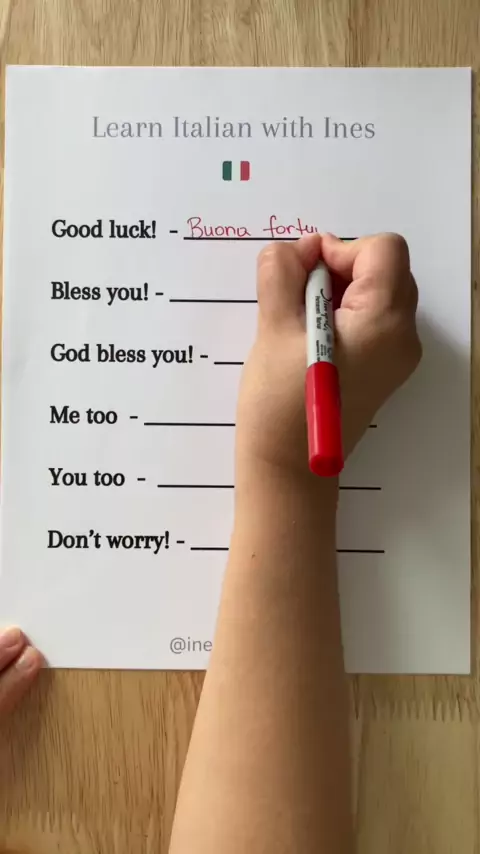 Learn Italian with Ines
Good luck! - Buona
Bless you! -
God bless you! -
Me too -
You too -
Don't worry! -